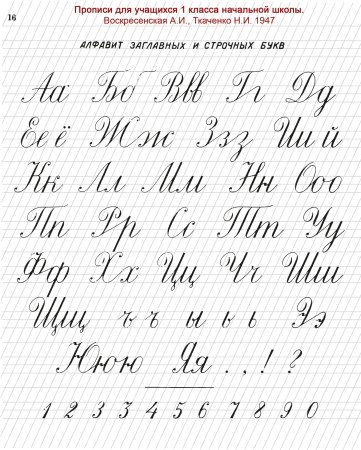 Прописи для учащихся 1 класса начальной школы.
16
Воскресенская А.И., Ткаченко Н.И. 1947
АЛФАВИТ ЗАГЛАВНЫХ И СТРОЧНЫХ БУКВ
Аа Бб Ввв Гг Дд
Ее ё Жж Ззз Ии й
Кк Лл Мм Нн Ооо
Пп Рр Сс Тт Уу
Фф Хх Цц Чч Шш
Щщ ъ ъ ы ь ь Ээ
Ююю Яя . , ! ?
1 2 3 4 5 6 7 8 9 0